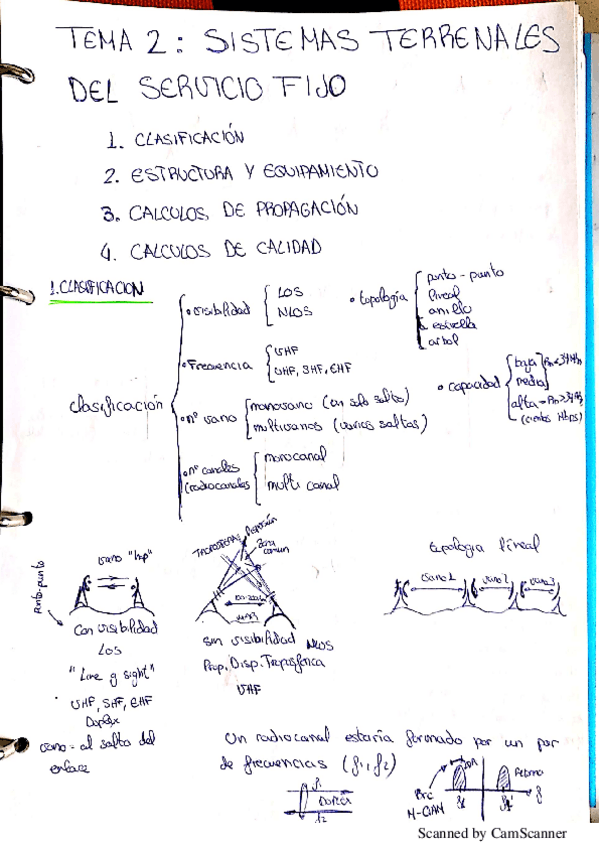 TEMA 2: SISTEMAS TERRENALES
DEL SERVICIO FIJO
1. CLASIFICACIÓN
2. ESTRUCTURA Y EQUIPAMIENTO
3. CALCULOS DE PROPAGACIÓN
4. CALCULOS DE CALIDAD
1. CLASIFICACION
clasificación
• visibilidad
LOS
NLOS
• Frecuencia
VHF
UHF, SHF, EHF
• nº vano
monovano (un solo salto)
multivanos (varios saltos)
• nº canales
(radiocanales
monocanal
multi canal
• topología
punto-punto
lineal
anillo
estrella
arbol
• capacidad
baja
media
alta
Punto-punto
vano "hop"
Con visibilidad
LOS
"Line of sight"
UHF, SHF, EHF
Duplex
vano = al salto del
enlace
TROPOSFERA
Dispersión
Zona
comun
sin visibilidad NLOS
Prop. Disp. Troposférica
UHF
topologia lineal
vano 1
vano 2
vano 3
Un radiocanal estaría formado por un par
de frecuencias (f1, f2)
f1
f2
f
Scanned by CamScanner